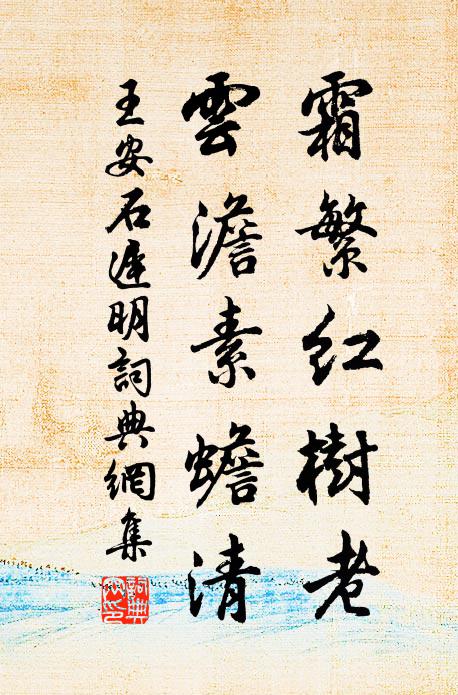 霜繁紅樹老
雲澹素蟾清
王安石遲明詞典網集